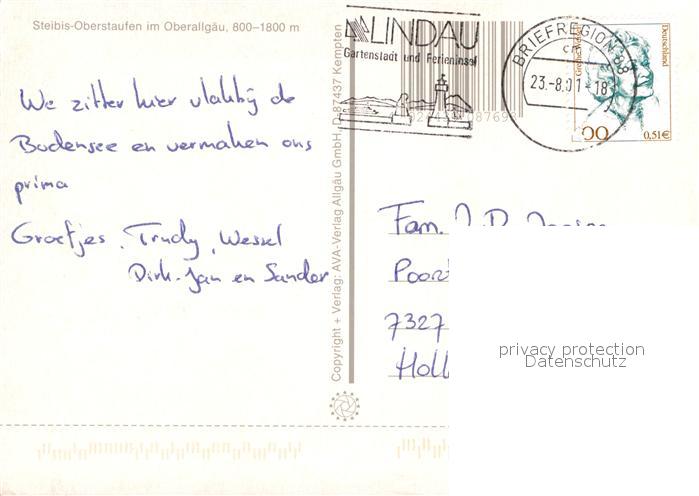 Steibis-Oberstaufen im Oberallgäu, 800–1800 m
We zitten hier vlakbij de
Bodensee en vermaken ons
prima
Groetjes, Trudy, Wessel
Dirk-Jan en Sander
Copyright + Verlag: AVA-Verlag Allgäu GmbH, D-87437 Kempten
LINDAU
Gartenstadt und Ferieninsel
BRIEFREGION 88
23.-8.01-18
Deutschland
0,51€
Fam. J.P.
Poort
7327
Holl
privacy protection
Datenschutz